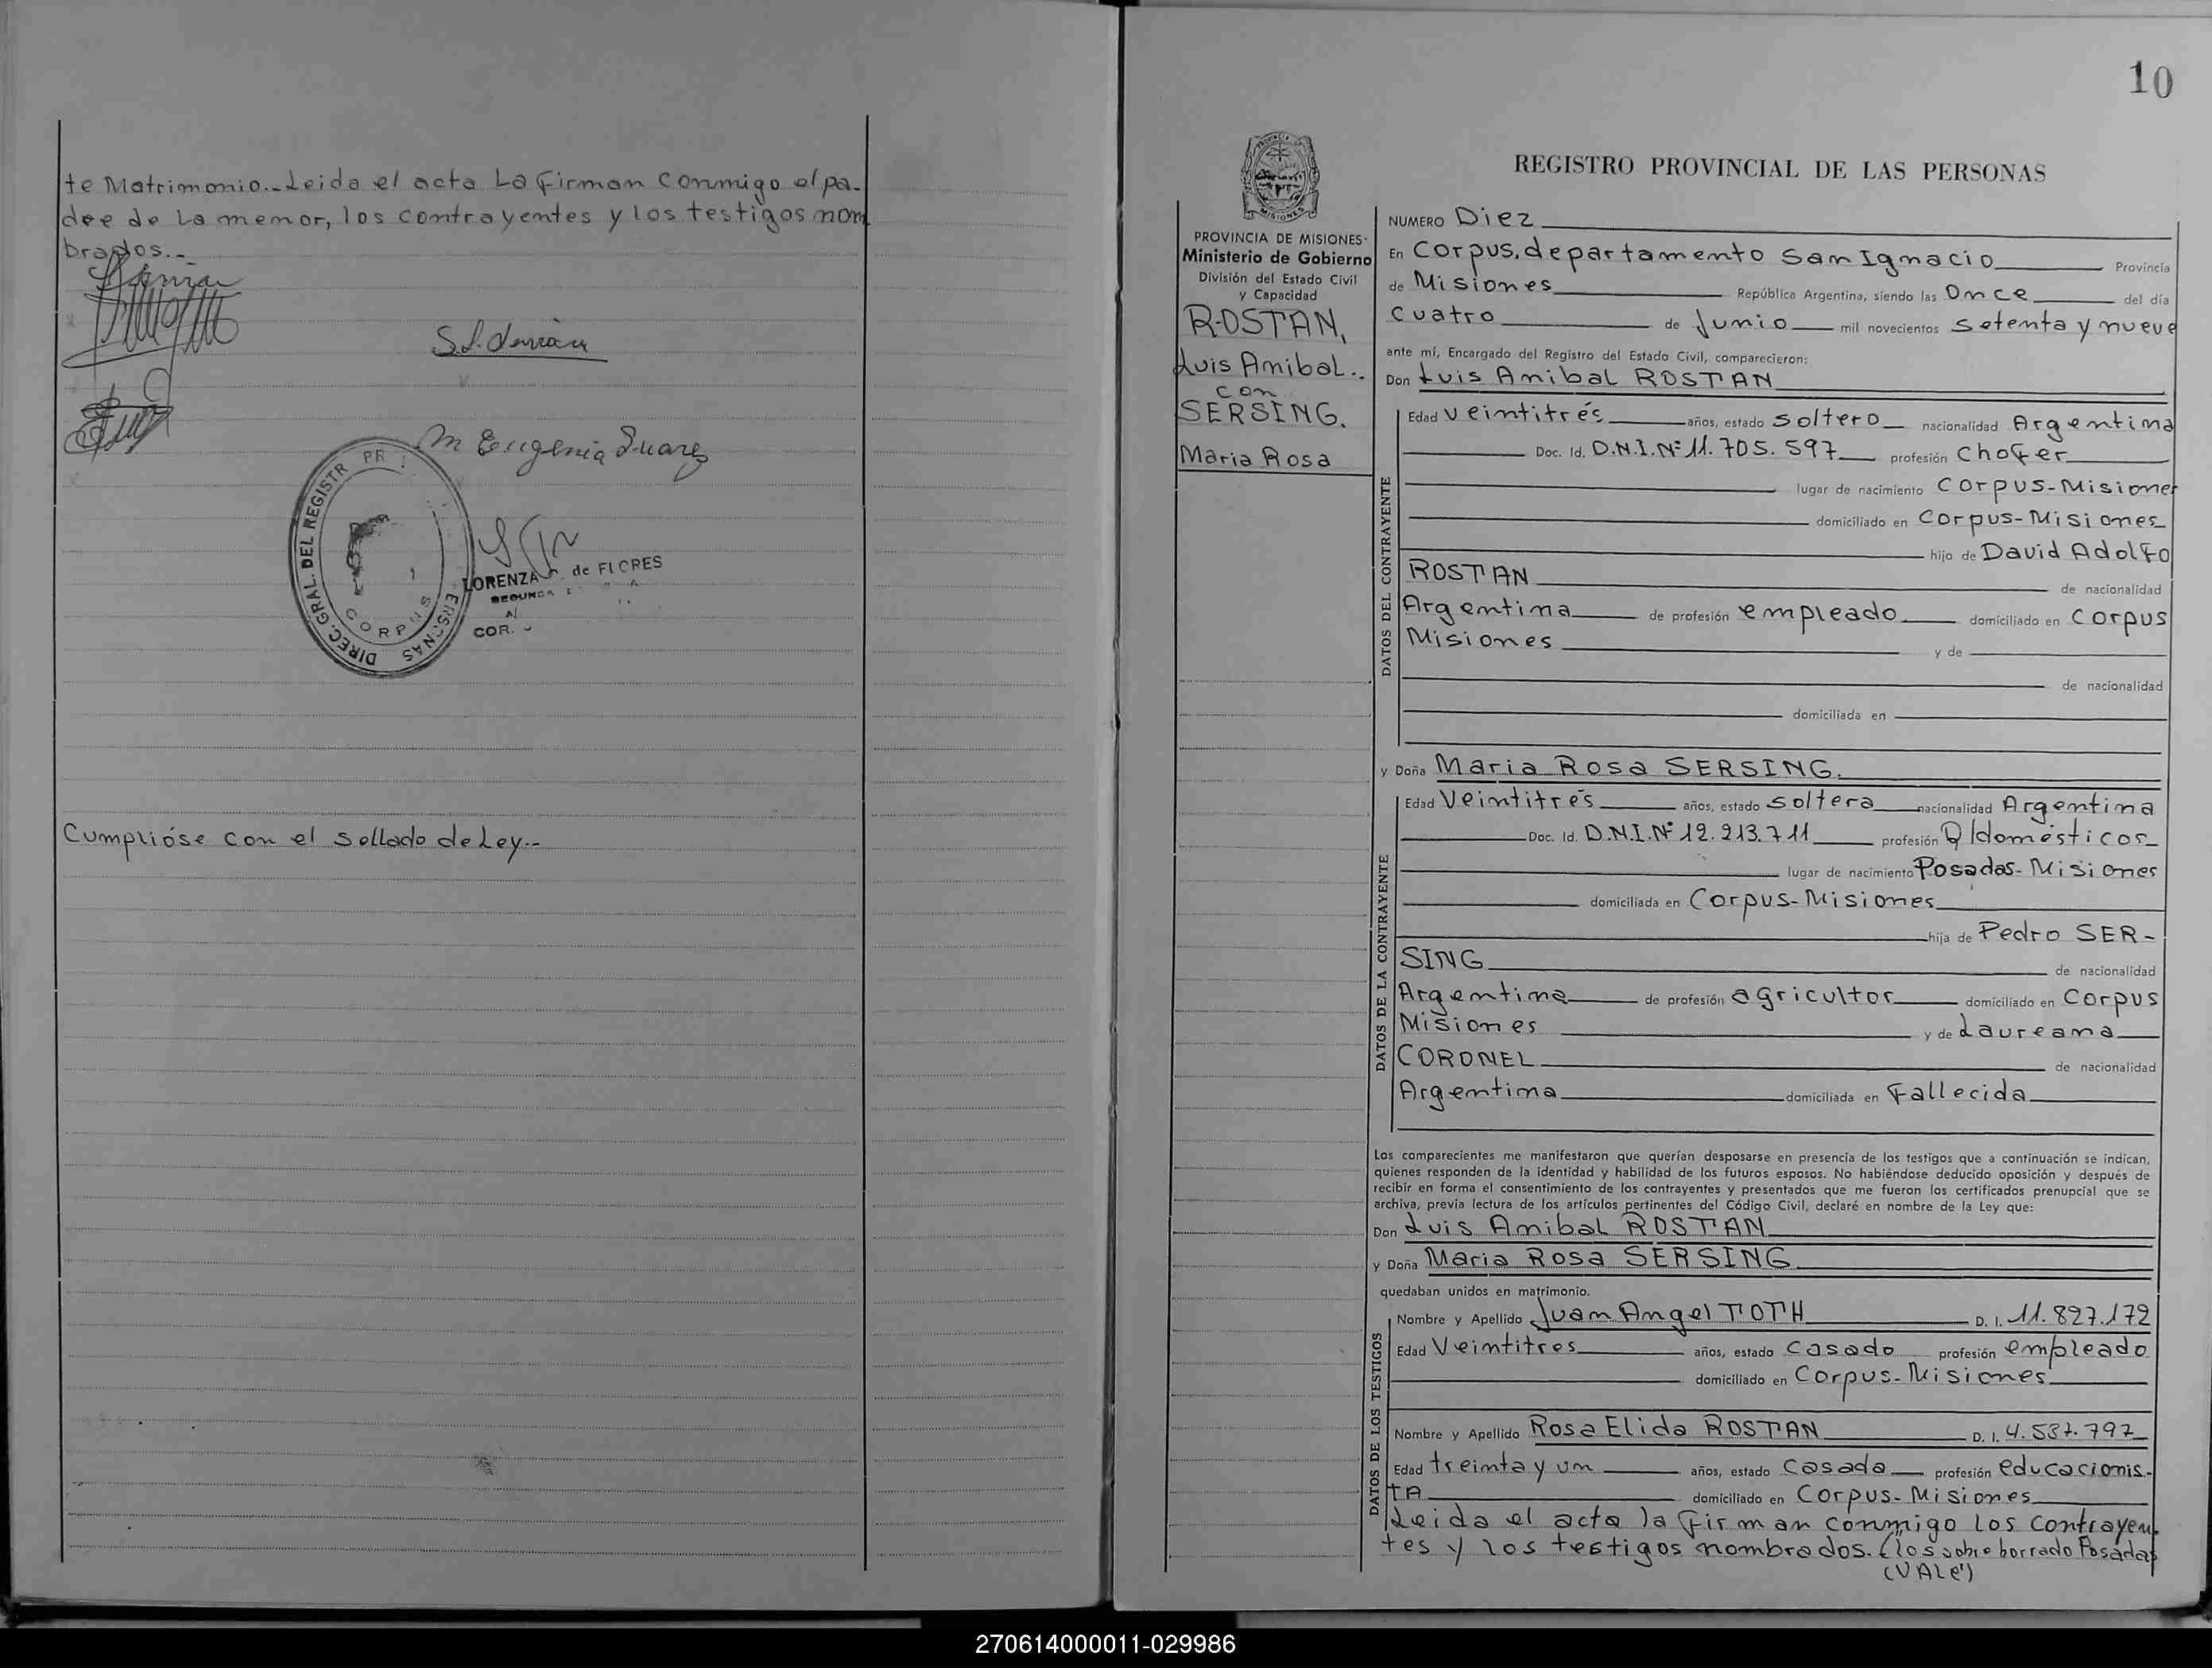 te Matrimonio.. Leida el acta La Firman Conmigo el pa-
dre de La menor, los contrayentes y los testigos nom
brados..-
M Eugenia Suarez
DIREC. GRAL. DEL REGISTR PR
ERSONAS
CORPUS
LORENZA de FLORES
COR.
Cumplióse con el sellado de Ley.-
10
PROVINCIA DE MISIONES-
Ministerio de Gobierno
División del Estado Civil
y Capacidad
ROSTAN,
Luis Anibal..
con
SERSING.
Maria Rosa
REGISTRO PROVINCIAL DE LAS PERSONAS
NUMERO Diez
En Corpus, departamento San Ignacio Provincia
de Misiones República Argentina, siendo las Once del día
cuatro de Junio mil novecientos setenta y nueve
ante mí, Encargado del Registro del Estado Civil, comparecieron:
Don Luis Anibal ROSTAN
DATOS DEL CONTRAYENTE
Edad veintitrés años, estado soltero nacionalidad Argentina
Doc. Id. D.N.I. Nº 11.705.597 profesión chofer
lugar de nacimiento Corpus-Misiones
domiciliado en Corpus-Misiones
hijo de David Adolfo
ROSTAN de nacionalidad
Argentina de profesión empleado domiciliado en Corpus
Misiones y de
de nacionalidad
domiciliada en
y Doña Maria Rosa SERSING.
DATOS DE LA CONTRAYENTE
Edad Veintitrés años, estado soltera nacionalidad Argentina
Doc. Id. D.N.I. Nº 12.213.711 profesión Q/domésticos
lugar de nacimiento Posadas-Misiones
domiciliada en Corpus-Misiones
hija de Pedro SER-
SING de nacionalidad
Argentina de profesión agricultor domiciliado en Corpus
Misiones y de Laureana
CORONEL de nacionalidad
Argentina domiciliada en Fallecida
Los comparecientes me manifestaron que querían desposarse en presencia de los testigos que a continuación se indican,
quienes responden de la identidad y habilidad de los futuros esposos. No habiéndose deducido oposición y después de
recibir en forma el consentimiento de los contrayentes y presentados que me fueron los certificados prenupcial que se
archiva, previa lectura de los artículos pertinentes del Código Civil, declaré en nombre de la Ley que:
Don Luis Anibal ROSTAN
y Doña Maria Rosa SERSING
quedaban unidos en matrimonio.
DATOS DE LOS TESTIGOS
Nombre y Apellido Juan Angel TOTH D. I. 11.827.172
Edad Veintitres años, estado Casado profesión empleado
domiciliado en Corpus-Misiones
Nombre y Apellido Rosa Elida ROSTAN D. I. 4.587.797
Edad treinta y un años, estado Casada profesión educacionis-
TA domiciliado en Corpus-Misiones
Leida el acta la Firman conmigo los contrayen-
tes y los testigos nombrados. (los sobre borrado Posadas
(VALE)
270614000011-029986